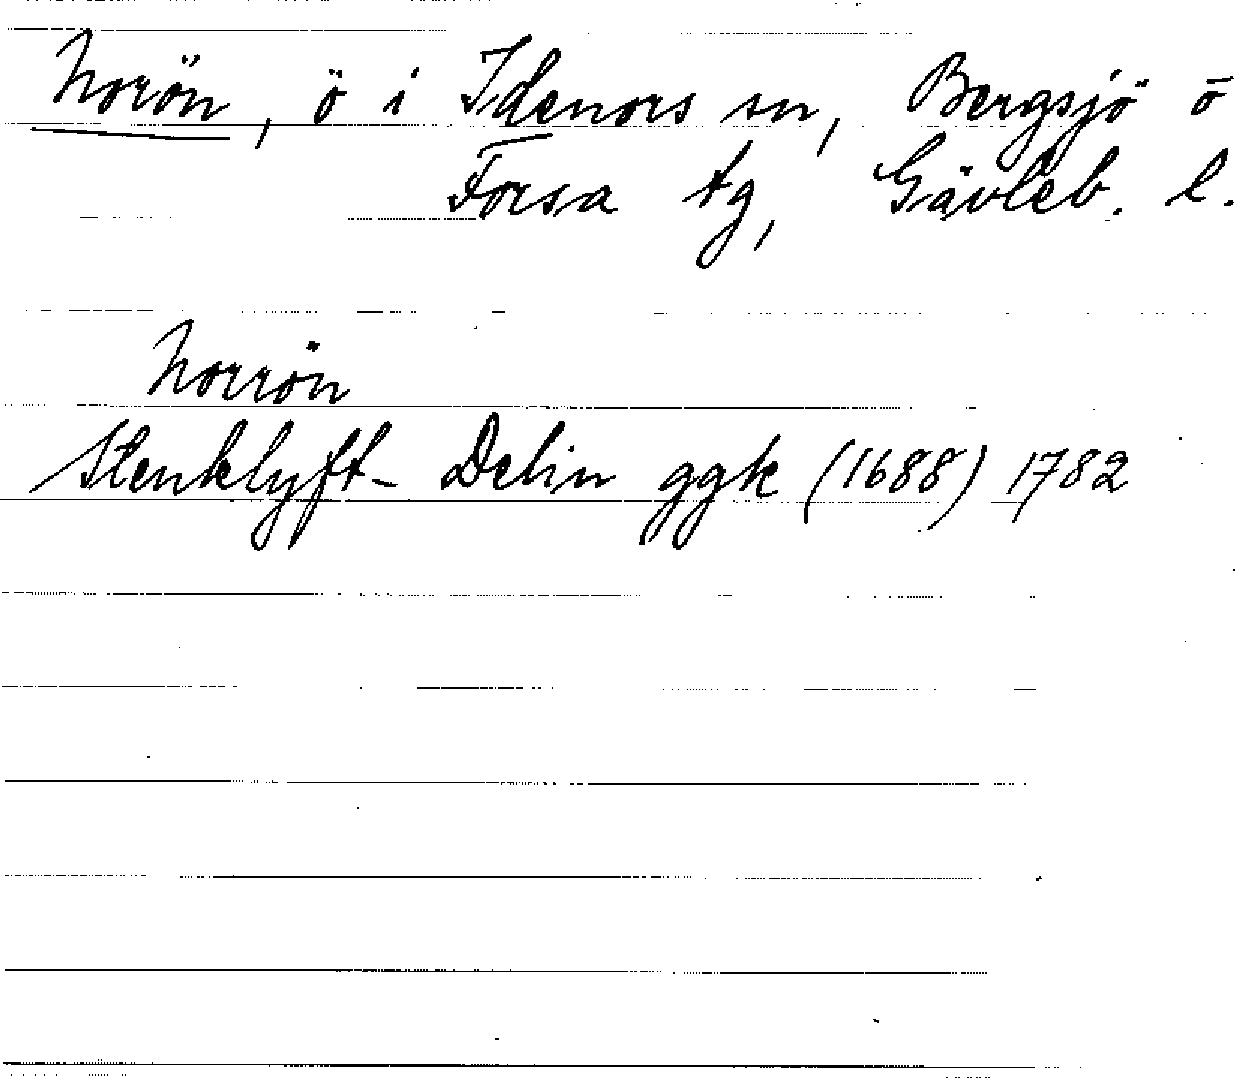 Norön, ö i Idenors sn, Bergsjö o
Forsa tg, Gävleb. l.
Norrön
Stenklyft- Delin ggk (1688) 1782